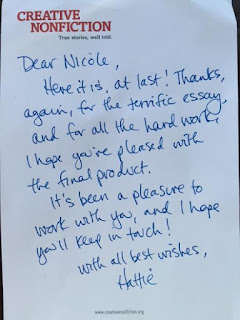 CREATIVE
NONFICTION
True stories, well told.
Dear Nicole,
Here it is, at last! Thanks,
again, for the terrific essay,
and for all the hard work,
I hope you're pleased with
the final product.
It's been a pleasure to
work with you, and I hope
you'll keep in touch!
with all best wishes,
Hattie
www.creativenonfiction.org